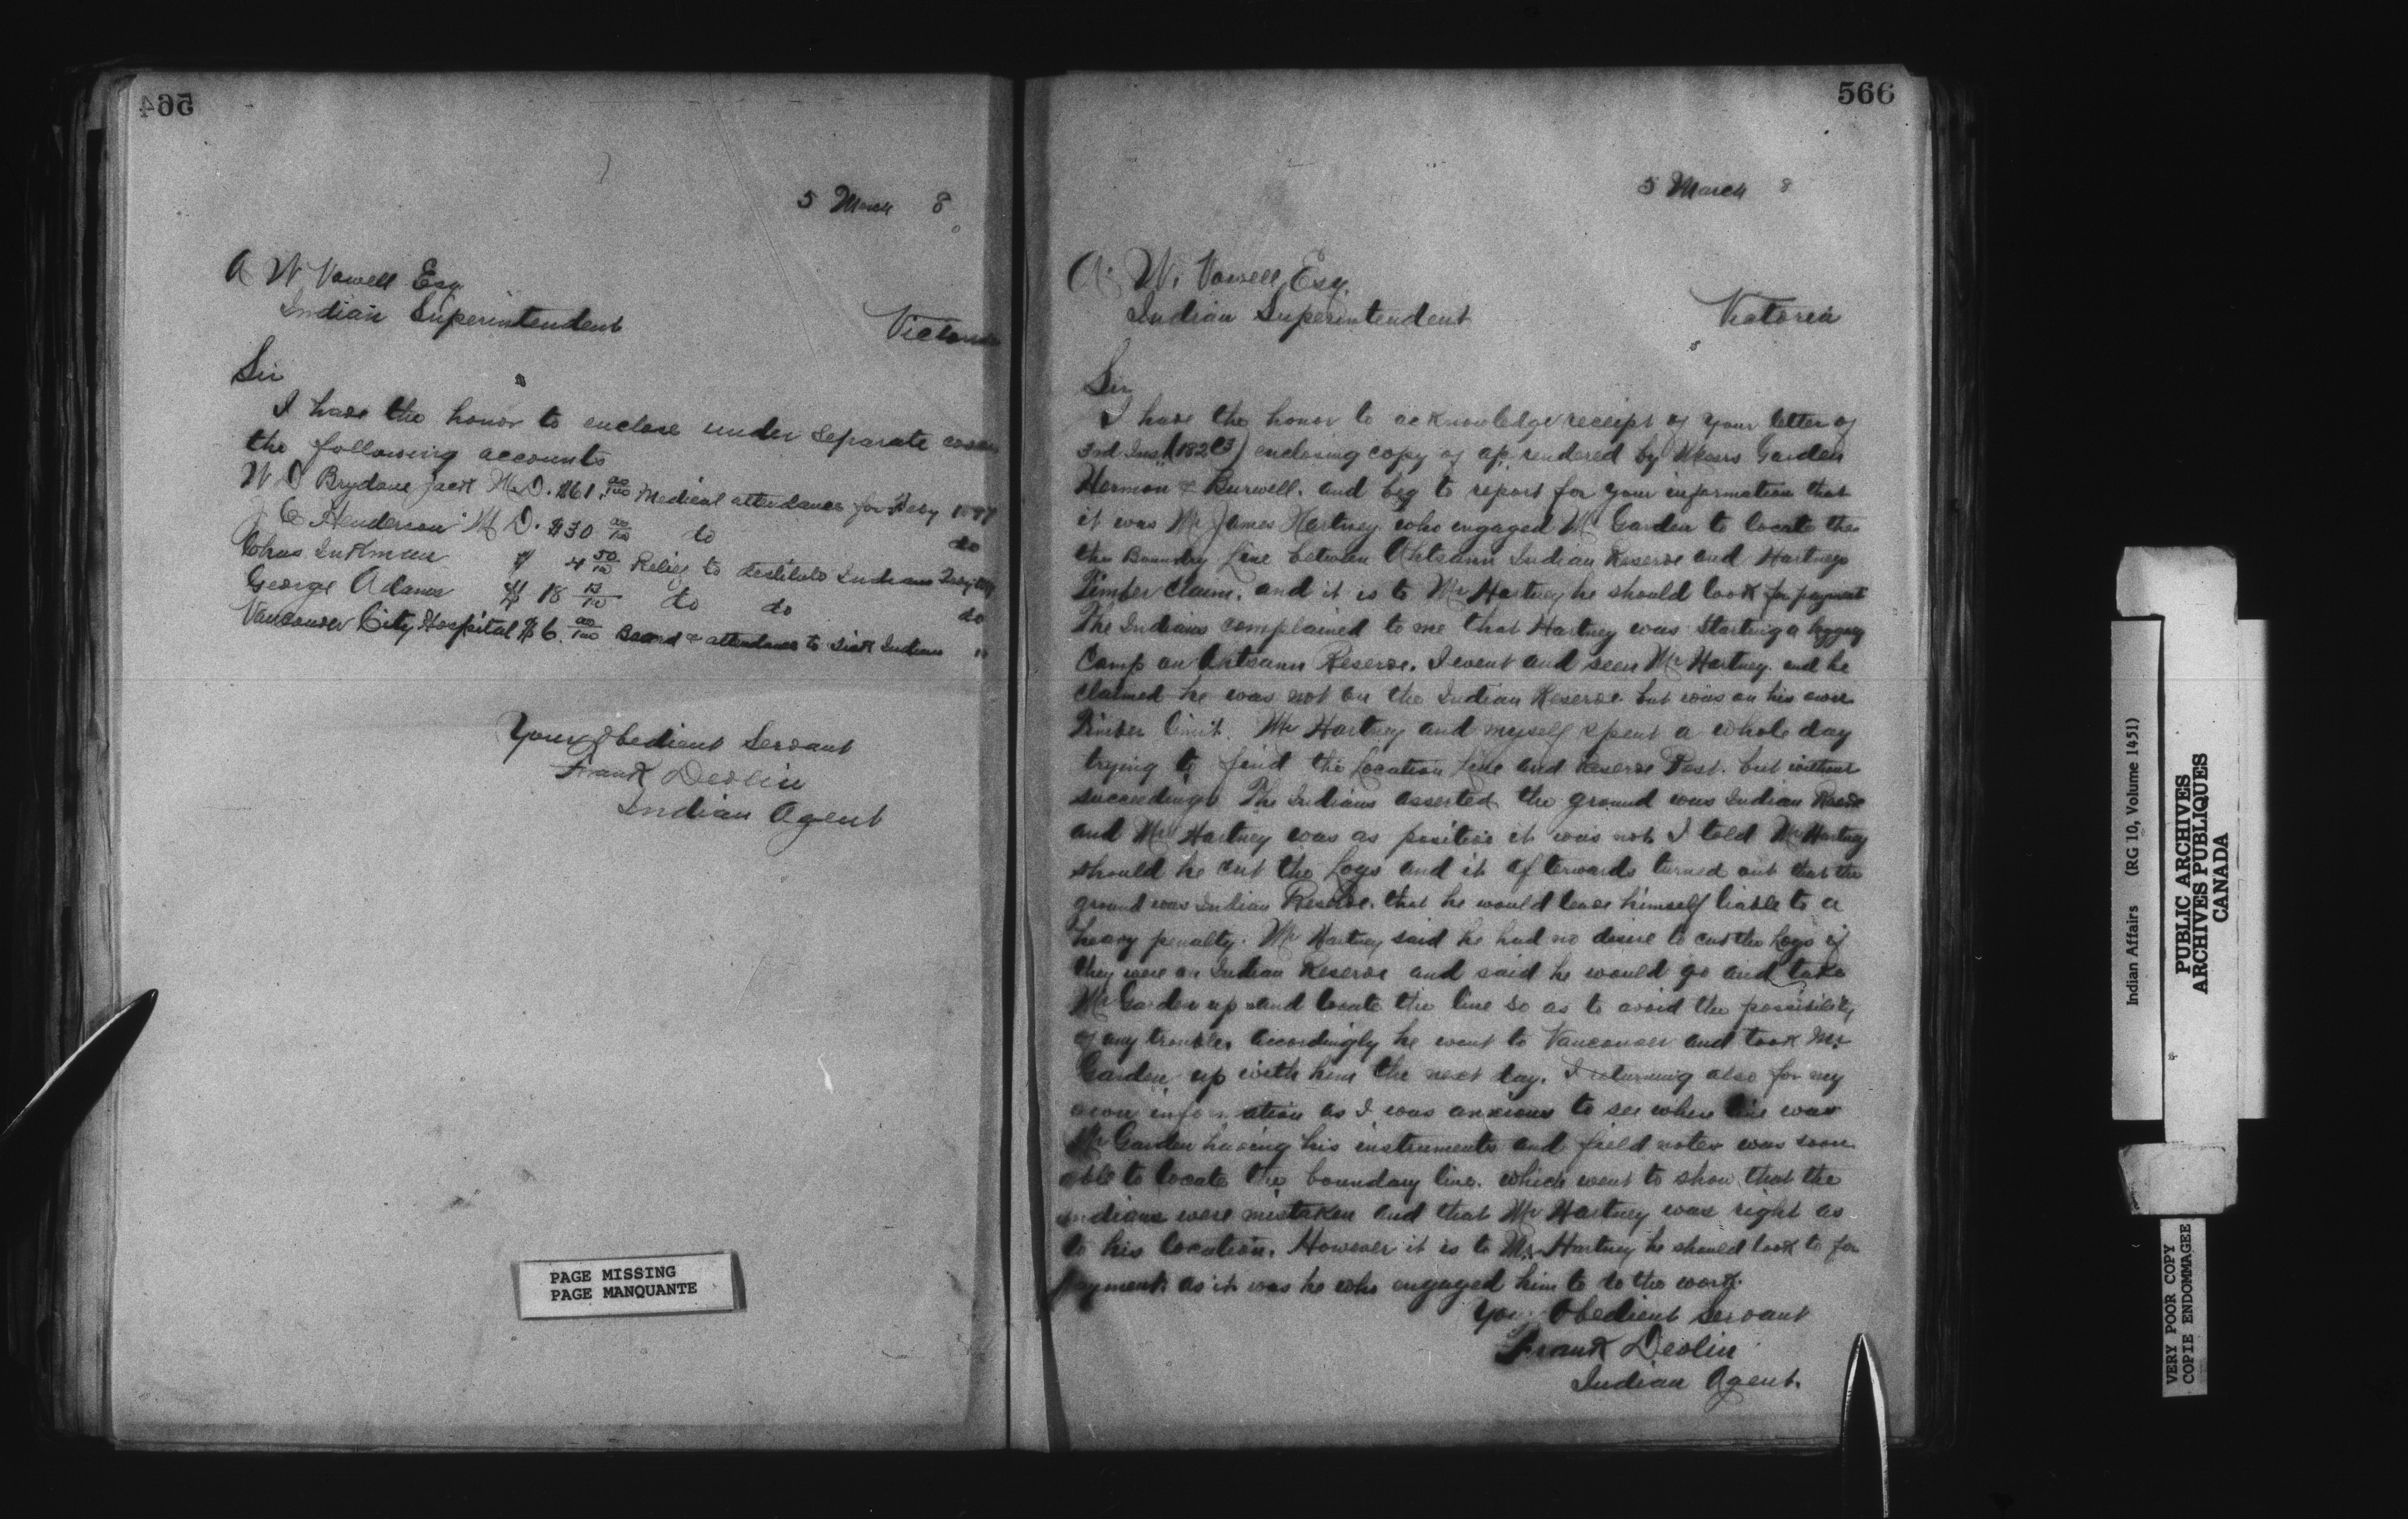 564
5 March 8
A W Vowell Esq
Indian Superintendent
Victoria
Sir
I have the honor to enclose under separate cover
the following accounts
W D Brydone Jack M.D. $61.00/100 Medical attendance for Feby 1897
C Henderson M D. $30 00/100 do do
Chas 4 50/100 Relief to destitute Indians
George Adams $ 18 do do do
Vancouver City Hospital $6.00/100 Board & attendance to Sick Indian "
Your Obedient Servant
Frank Devlin
Indian Agent
PAGE MISSING
PAGE MANQUANTE
566
5 March 8
A. W. Vowell Esq.
Indian Superintendent
Victoria
Sir
I have the honor to acknowledge receipt of your letter of
3rd Inst enclosing copy of a/c rendered by Messrs Garden
Hermon & Burwell. and beg to report for your information that
it was Mr James Hartney who engaged Mr Garden to locate the
the Boundry Line between Indian Reserve and Hartneys
Timber Claim. and it is to Mr Hartney he should look for payment
The Indians complained to me that Hartney was starting a logging
Camp on Reserve. I went and seen Mr Hartney. and he
claimed he was not on the Indian Reserve but was on his own
Timber limit. Mr Hartney and myself spent a whole day
trying to find the Location Line and Reserve Post. but without
succeeding. The Indians asserted the ground was Indian Reserve
and Mr Hartney was as positive it was not. I told Mr Hartney
should he cut the Logs and it afterwards turned out that the
ground was Indian Reserve. that he would leave himself liable to a
heavy penalty. Mr Hartney said he had no desire to cut the Logs if
they were on Indian Reserve and said he would go and take
Mr Garden up and locate the line so as to avoid the possibility
of any trouble. accordingly he went to Vancouver and took Mr
Garden up with him the next day. I returning also for my
own information as I was anxious to see where line was
Mr Garden having his instruments and field notes was soon
able to locate the boundary line. which went to show that the
Indians were mistaken and that Mr Hartney was right as
to his location. However it is to Mr Hartney he should look to for
payment as it was he who engaged him to do the work.
Your Obedient Servant
Frank Devlin
Indian Agent.
Indian Affairs (RG 10, Volume 1451)
PUBLIC ARCHIVES
ARCHIVES PUBLIQUES
CANADA
VERY POOR COPY
COPIE ENDOMMAGEE